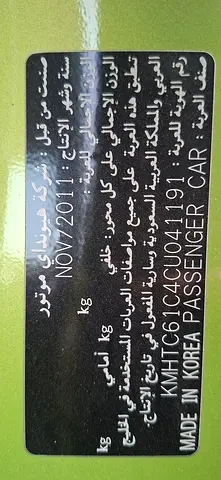 صنعت من قبل : شركة هيونداي موتور
سنة وشهر الانتاج : NOV/2011
الوزن الاجمالي للعربة : kg
الوزن الاجمالي على كل محور: خلفي kg أمامي kg
تطابق هذه العربة على جميع مواصفات العربات المستخدمة في الخليج
العربي والمملكة العربية السعودية وسارية المفعول في تاريخ الإنتاج.
رقم الهوية للعربة : KMHTC61C4CU041191
صنف العربة : PASSENGER CAR
MADE IN KOREA